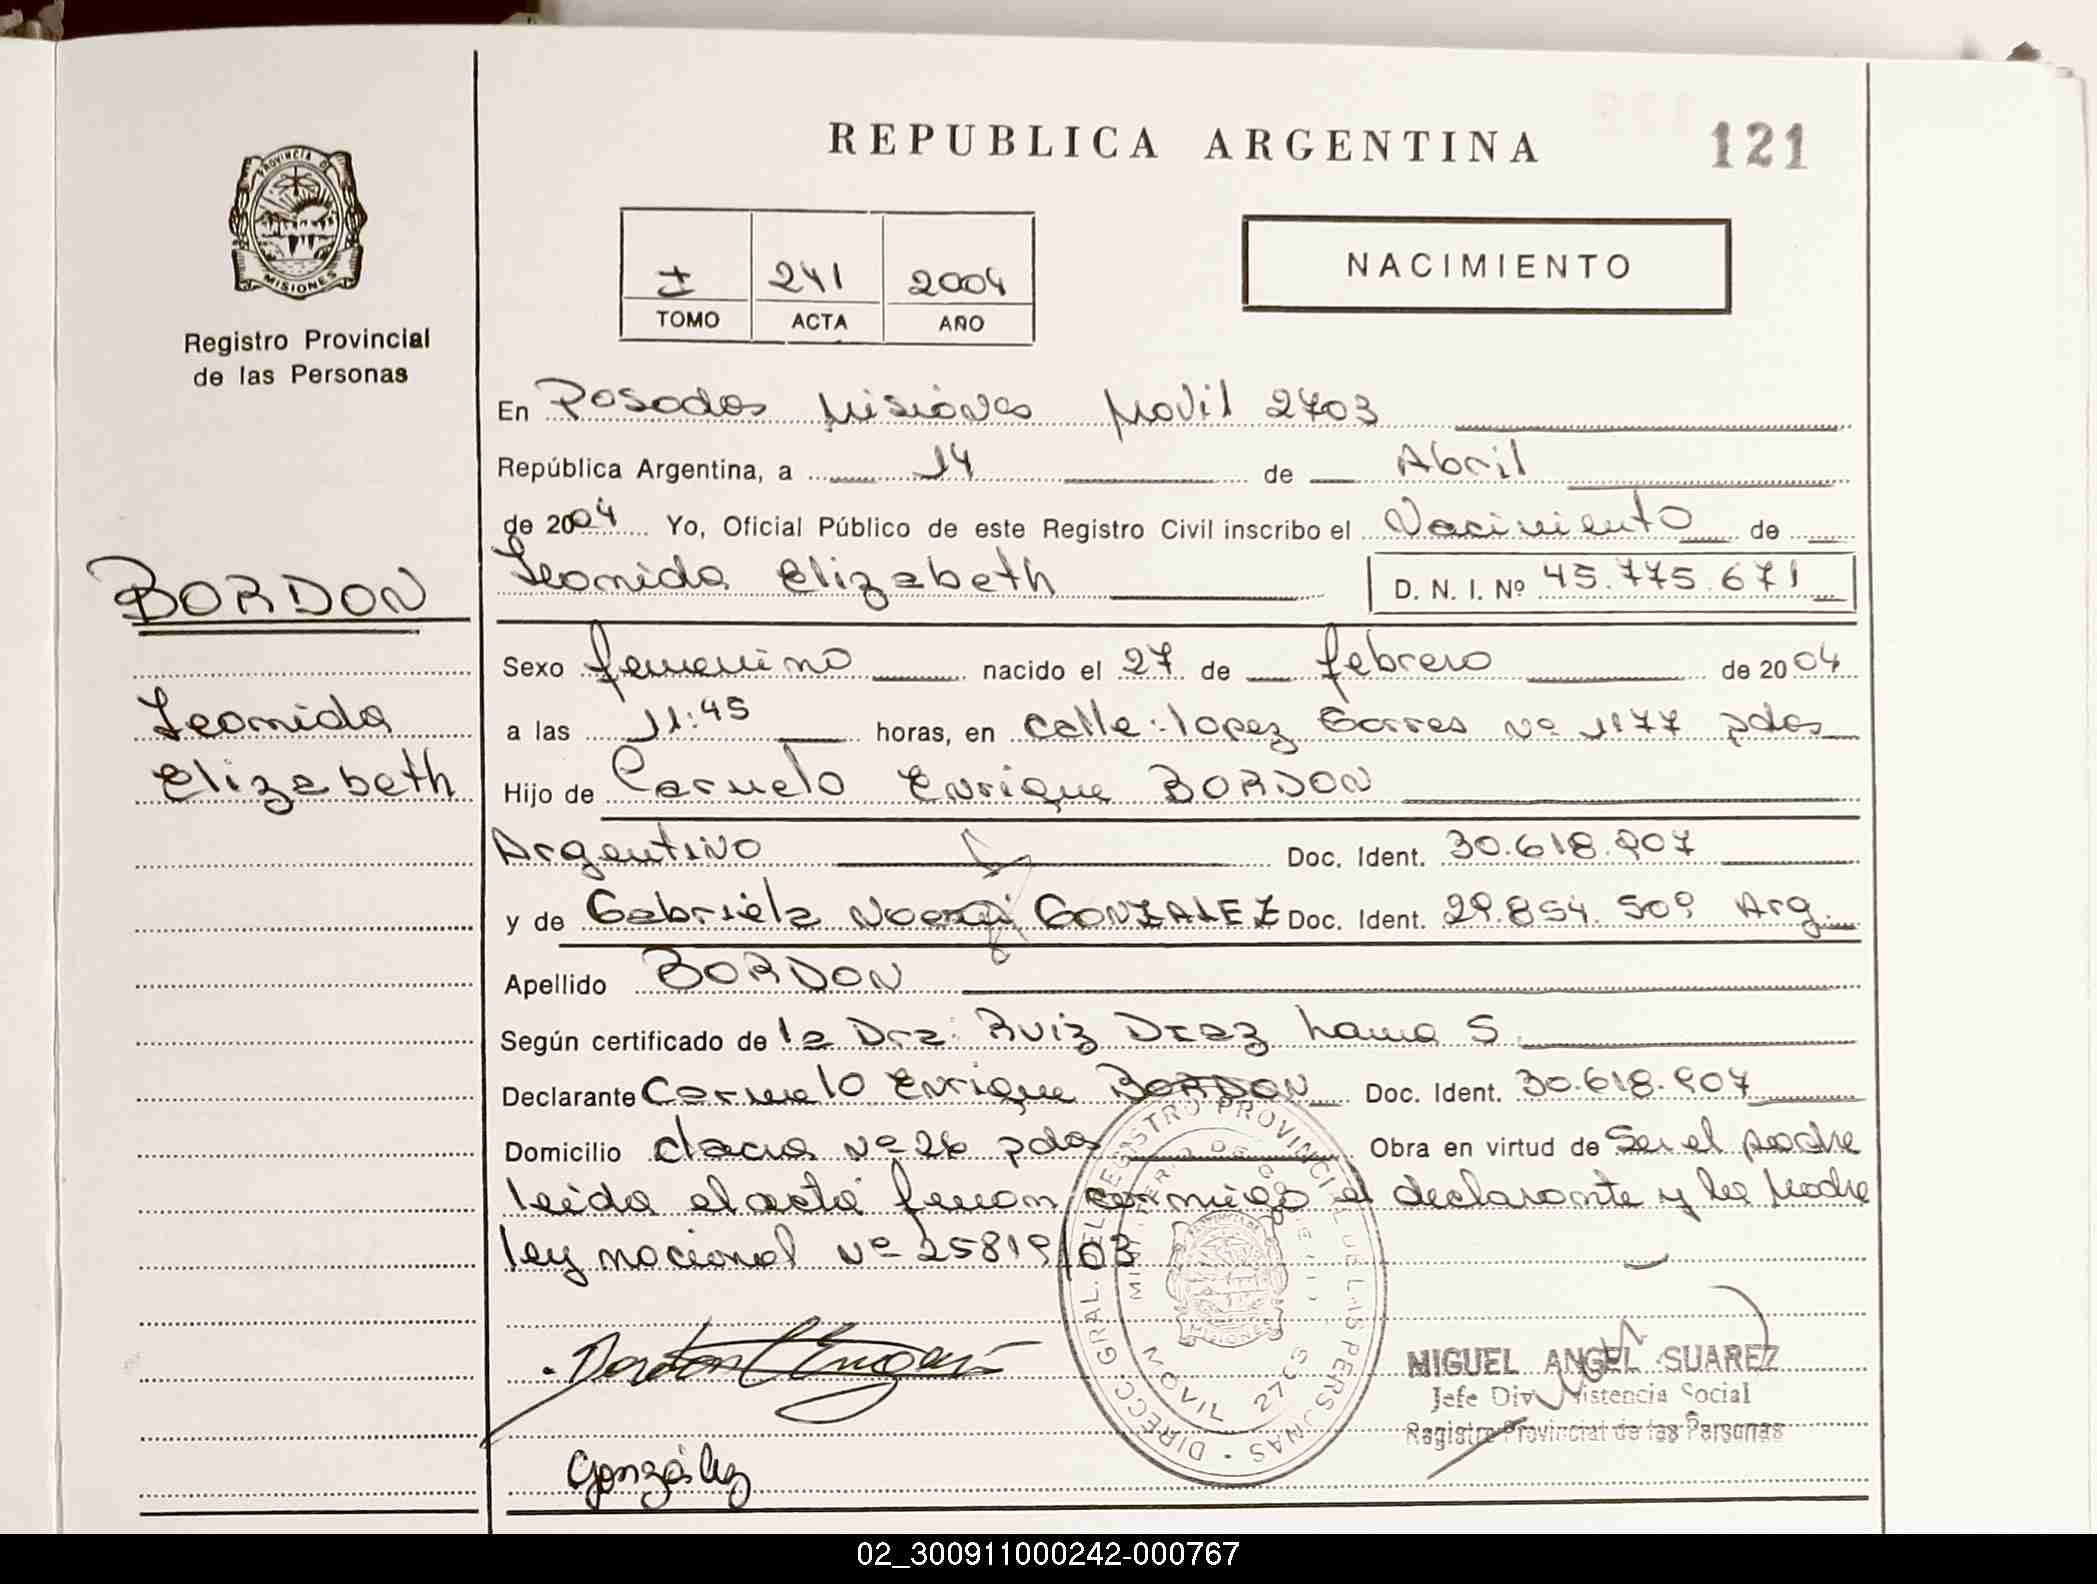 REPUBLICA ARGENTINA
121
PROVINCIA DE
MISIONES
Registro Provincial
de las Personas
I 241 2004
TOMO ACTA AÑO
NACIMIENTO
En Posadas Misiones Movil 2703
República Argentina, a 14 de Abril
de 2004 Yo, Oficial Público de este Registro Civil inscribo el Nacimiento de
Leonida Elizabeth D. N. I. Nº 45.775.671
BORDON
Leonida
Elizabeth
Sexo femenino nacido el 27 de febrero de 2004
a las 11:45 horas, en calle: lopez torres Nº 1177 pdas
Hijo de Carmelo Enrique BORDON
Argentino Doc. Ident. 30.618.907
y de Gabriela GONZALEZ Doc. Ident. 29.854.509 Arg.
Apellido BORDON
Según certificado de la Dra: Ruiz Diaz S.
Declarante Carmelo Enrique BORDON Doc. Ident. 30.618.907
Domicilio Nº 26 pdas Obra en virtud de Ser el padre
leida el acta firman conmigo el declarante y la Madre
ley nacional Nº 25819/03
DIRECC. GRAL. DEL REGISTRO PROVINCIAL DE LAS PERSONAS
MINISTERIO DE GOBIERNO
PROVINCIA DE
MISIONES
MOVIL 2703
MIGUEL ANGEL SUAREZ
Jefe Div. Asistencia Social
Registro Provincial de las Personas
González
02_300911000242-000767